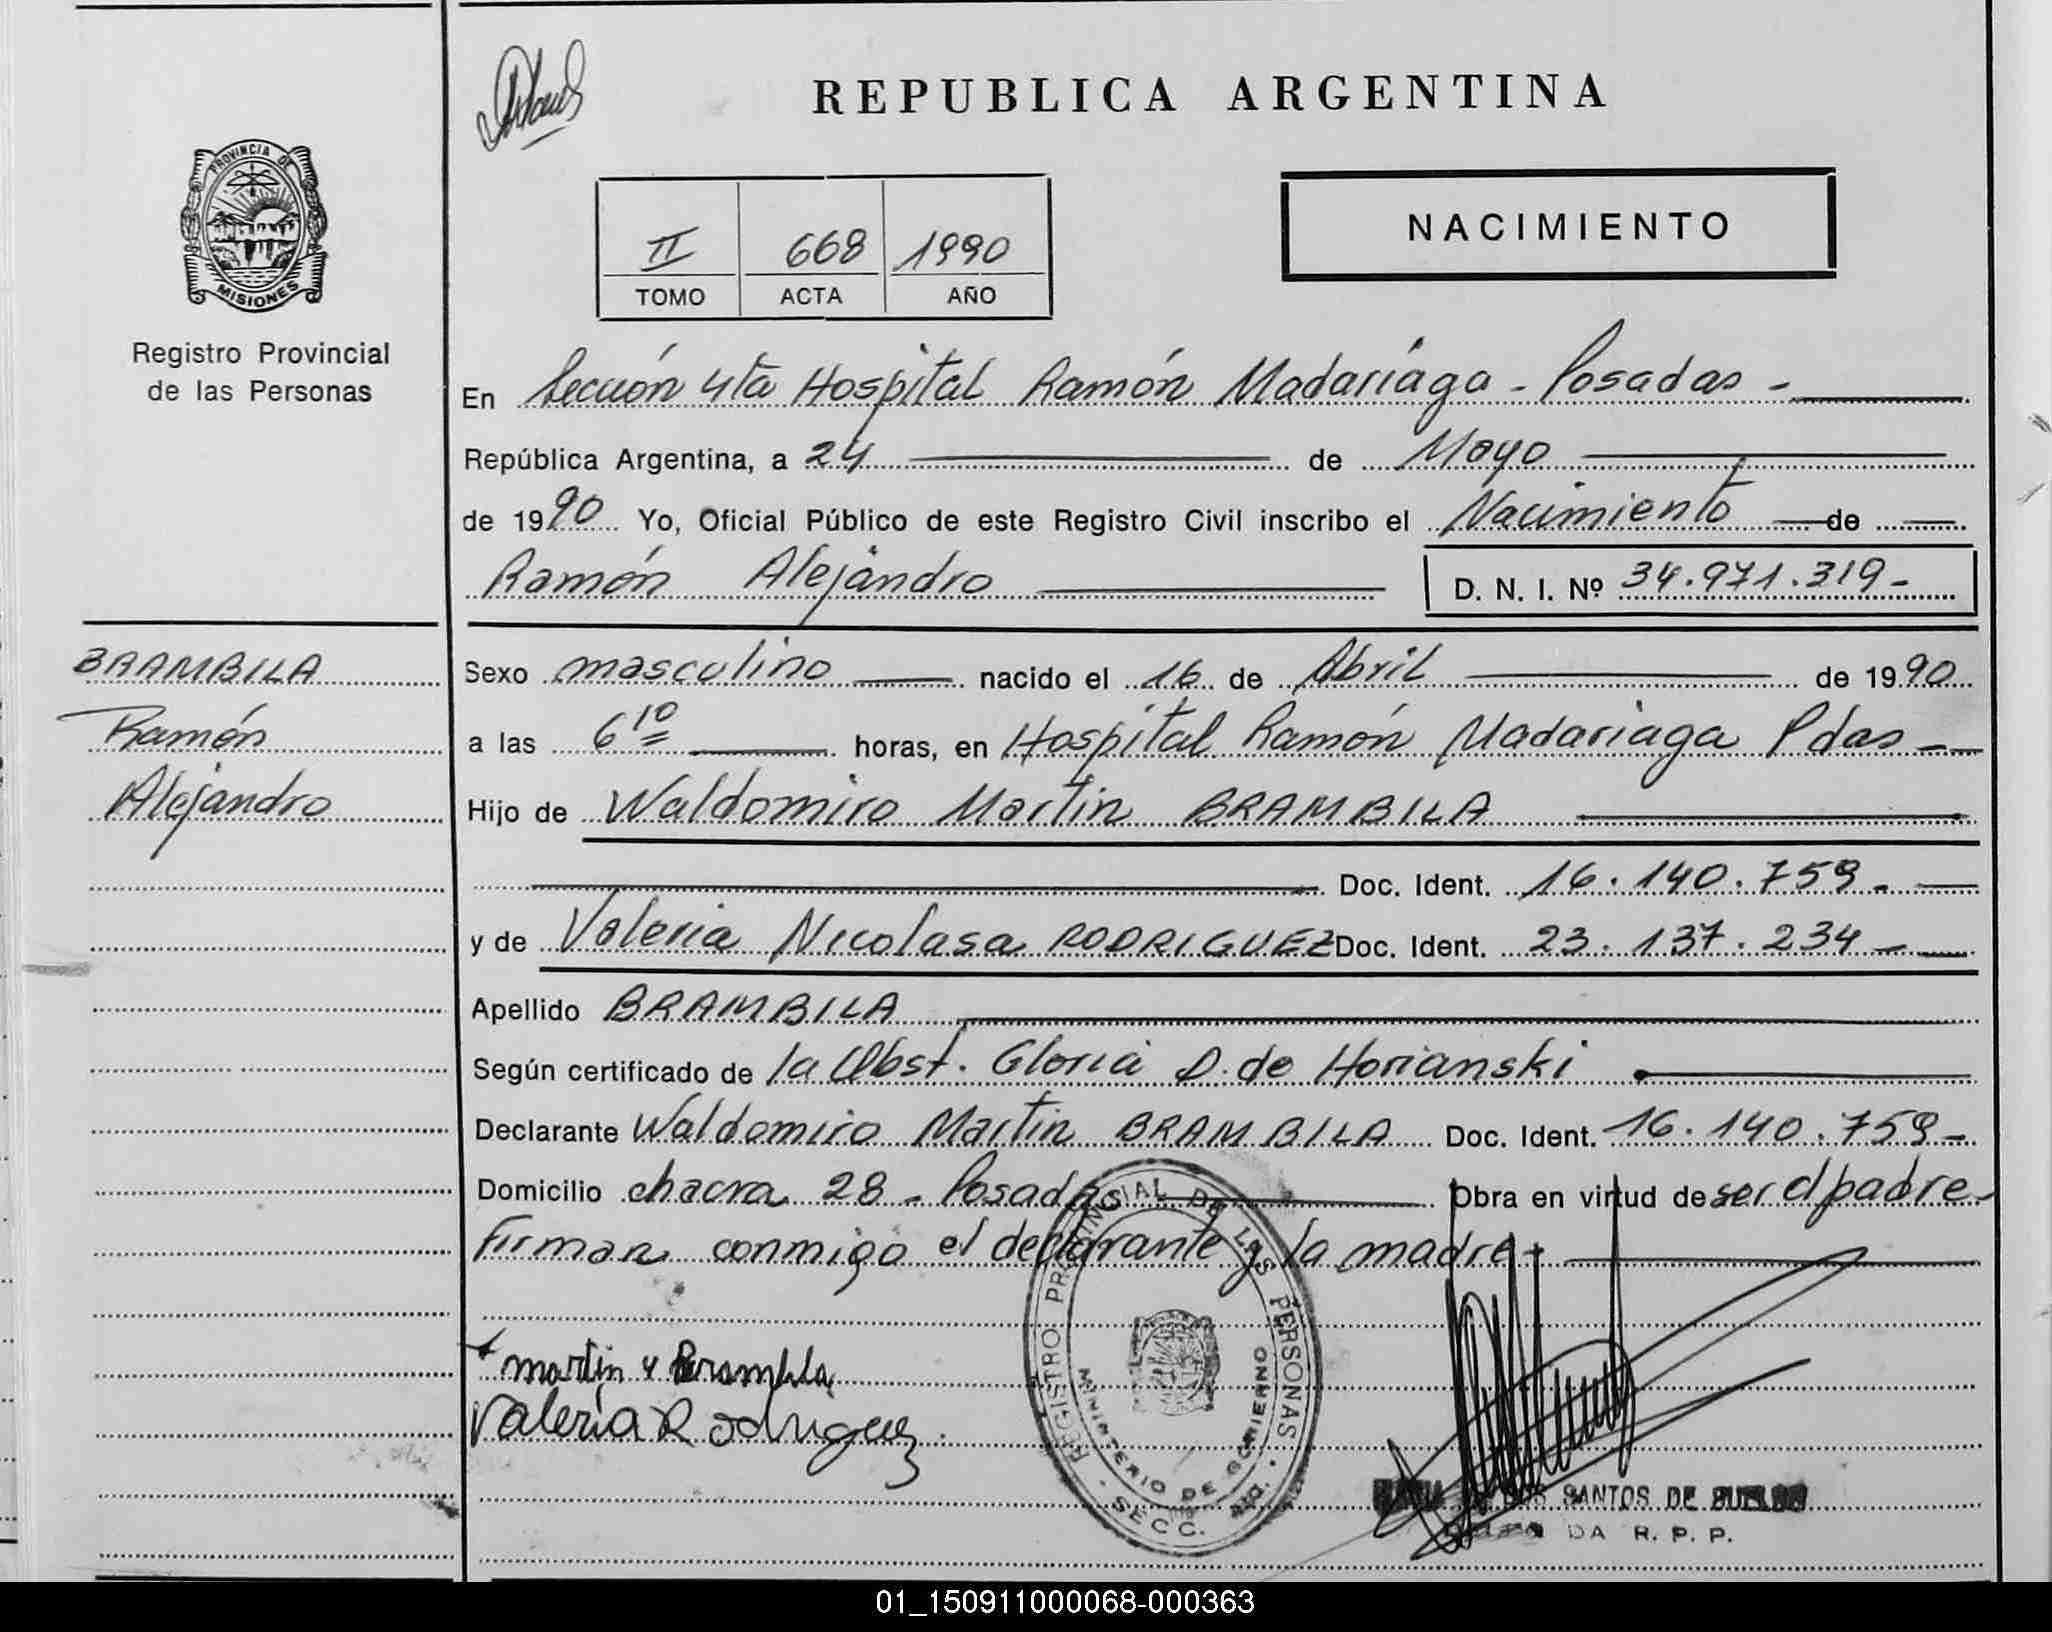 REPUBLICA ARGENTINA
PROVINCIA DE
MISIONES
Registro Provincial
de las Personas
NACIMIENTO
II 668 1990
TOMO ACTA AÑO
En Sección 4ta Hospital Ramón Madariaga - Posadas -
República Argentina, a 24 de Mayo
de 1990 Yo, Oficial Público de este Registro Civil inscribo el Nacimiento de
Ramón Alejandro D. N. I. Nº 34.971.319-
BRAMBILA
Ramón
Alejandro
Sexo masculino nacido el 16 de Abril de 1990
a las 6 10 horas, en Hospital Ramón Madariaga Pdas -
Hijo de Waldomiro Martin BRAMBILA
Doc. Ident. 16.140.759-
y de Valeria Nicolasa RODRIGUEZ Doc. Ident. 23.137.234-
Apellido BRAMBILA
Según certificado de la Obst. Gloria D. de Horianski
Declarante Waldomiro Martin BRAMBILA Doc. Ident. 16.140.759-
Domicilio chacra 28 - Posadas Obra en virtud de ser el padre-
Firman conmigo el declarante y la madre-
martin Brambila
Valeria Rodriguez
REGISTRO PROVINCIAL DE LAS PERSONAS
MINISTERIO DE GOBIERNO
SECC. 4ta.
SANTOS DE
DA R. P. P.
01_150911000068-000363